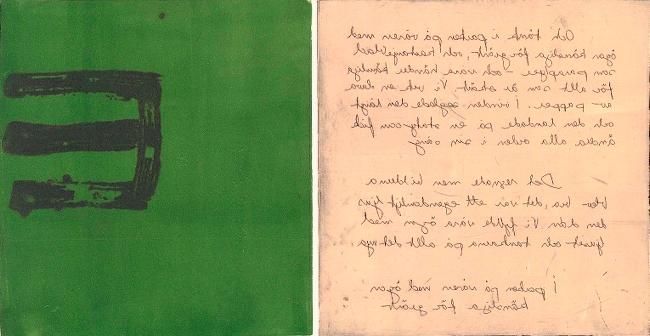 Och tänk i parken på våren med
ögon känsliga för grönt, och kastanjeblad
som paraplyer - och våra händer känsliga
för allt som är skört. Vi vek en duva
av papper. I vinden seglade den långt
och den landade på en staty som fick
ändra alla orden i sin sång
Det regnade men bilderna
blev bra, det var ett egendomligt ljus
den dan. Vi fyllde våra ögon med
ljuset och tankarna på allt det nya.
I parken på våren med ögon
känsliga för grönt